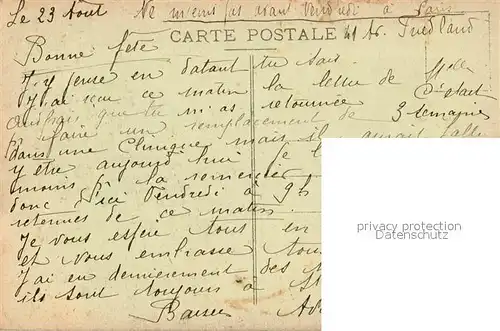 Le 23 Aout Ne m'ecris pas avant Vendredi à Paris
CARTE POSTALE 41 Av. Friedland
Bonne fête
J'y pense en datant tu sais.
J'ai reçu ce matin la lettre de Melle
que tu m'as retournée C'était
pr faire un remplacement de 3 semaines
dans une Clinique mais il aurait fallu
y etre aujourd'hui je
moins pr la remercier
donc d'ici Vendredi à 9h
retenues de ce matin.
Je vous espère tous en
et vous embrasse tous
J'ai eu dernierement des
ils sont toujours à St
Baisers
privacy protection
Datenschutz